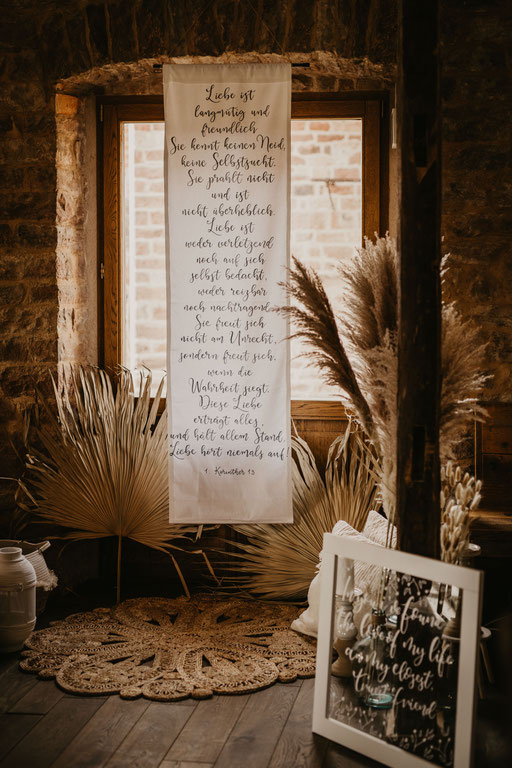 Liebe ist
langmütig und
freundlich
Sie kennt keinen Neid,
keine Selbstsucht.
Sie prahlt nicht
und ist
nicht überheblich.
Liebe ist
weder verletzend
noch auf sich
selbst bedacht,
weder reizbar
noch nachtragend.
Sie freut sich
nicht am Unrecht,
sondern freut sich,
wenn die
Wahrheit siegt.
Diese Liebe
erträgt alles,
und hält allem Stand.
Liebe hört niemals auf!
1. Korinther 13
found
the love of my life
my closest,
friend